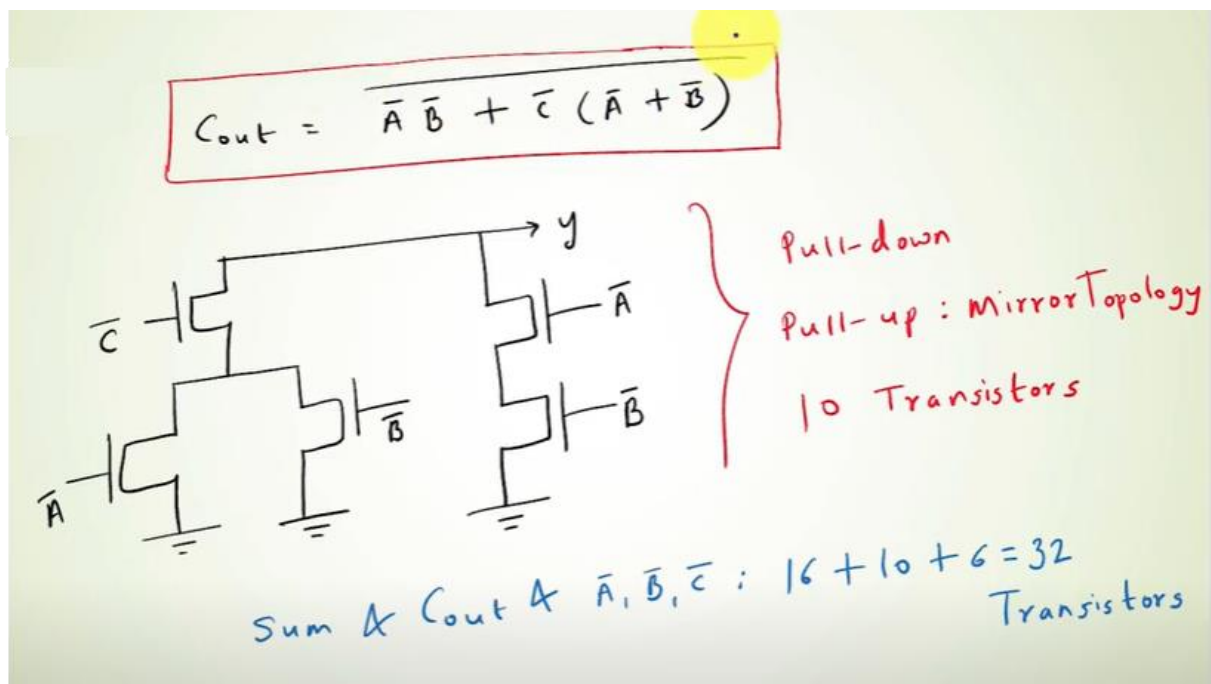 Cout = A̅ B̅ + C̅ (A̅ + B̅)
y
C̅
A̅
B̅
A̅
B̅
Pull-down
Pull-up : Mirror Topology
10 Transistors
Sum & Cout & A̅, B̅, C̅ : 16 + 10 + 6 = 32
Transistors